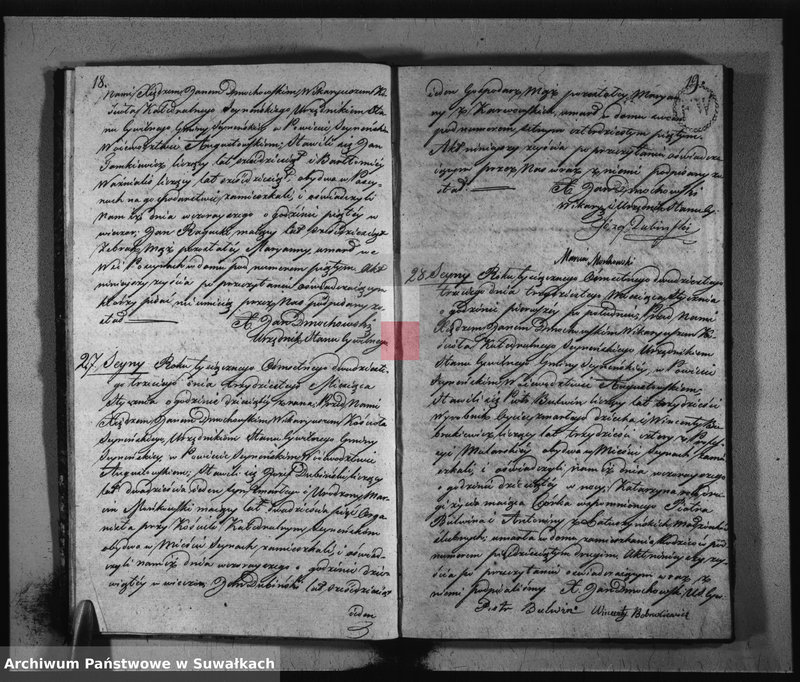 18.
Nami Xiędzem Janem Dmochowskim Wikaryuszem Ko-
ścioła Katedralnego Seyneńskiego Urzędnikiem Sta-
nu Cywilnego Gminy Seyneńskiey w Powiecie Seyneńskim
Woiewództwie Augustowskim, Stawili się Jan
Tomkiewicz liczący lat
liczący lat obydwa w Posey-
nach na gospodarstwie zamieszkali, i oświadczyli
Nam iż dnia wczorayszego o godzinie piątey w
wieczor, Jan Rogucki maiący lat
Żebrak, Mąż pozostałey Maryanny, umarł we
Wsi Poseynach w domu pod numerem piątym. Akt
ninieyszy zeyścia po przeczytaniu oświadczaiącym
którzy pisać nie umieią przez Nas podpisany zo-
stał.
X. Jan Dmochowski
Urzędnik Stanu Cywilnego
27 Seyny Roku tysiącznego Osmsetnego dwudzieste-
go trzeciego dnia trzydziestego Miesiąca
Stycznia o godzinie dziewiątey z rana. Przed Nami
Xiędzem Janem Dmochowskim Wikaryuszem Kościoła
Seyneńskiego, Urzędnikiem Stanu Cywilnego Gminy
Seyneńskiey w Powiecie Seyneńskim, Woiewództwie
Augustowskim, Stawili się Józef Dubiński liczący
lat dwadzieścia ieden Syn zmarłego i Urodzony Mar-
cin Mańkowski maiący lat dwadzieścia pięć Orga-
nista przy Kościele Katedralnym Seyneńskim
obydwa w Mieście Seynach zamieszkali, i oświad-
czyli nam iż dnia wczorayszego o godzinie dzie-
wiątey w wieczor, Jan Dubiński lat
ieden
19.
ieden Gospodarz, Mąż pozostałey Maryan-
ny z Karwowskich, umarł w domu swoim
pod numerem setnym czterdziestym piątym.
Akt ninieyszy zeyścia po przeczytaniu oświadcza-
iącym przez Nas wraz z niemi podpisany zo-
stał.
X. Jan Dmochowski
Wikary i Urzędnik Stanu Cy.
Józef Dubiński
Marcin Mańkowski
28. Seyny Roku tysiącznego Osmsetnego dwudziestego
trzeciego dnia trzydziestego Miesiąca Stycznia
o godzinie pierwszey po południu, Przed Nami
Xiędzem Janem Dmochowskim Wikaryuszem Ko-
ścioła Katedralnego Seyneńskiego Urzędnikiem
Stanu Cywilnego Gminy Seyneńskiey, w Powiecie
Seyneńskim, Woiewództwie Augustowskim,
Stawili się Piotr Bulwin liczący lat trzydzieści
Wyrobnik Oyciec zmarłego dziecka i Wincenty Bo-
brukiewicz liczący lat trzydzieści cztery z Profes-
syi Malarskiey obydwa w Mieście Seynach zamie-
szkali i oświadczyli nam iż dnia wczorayszego
o godzinie dziewiątey w nocy, Katarzyna rok dru-
gi życia maiąca Córka wspomnionego Piotra
Bulwina i Antoniny z Małżonków
ślubnych, umarła w domu zamieszkania Rodziców pod
numerem pięćdziesiątym drugim. Akt ninieyszy zey-
ścia po przeczytaniu oświadczaiącym wraz z
niemi podpisaliśmy. X. Jan Dmochowski Urz. Cyw.
Piotr Bulwin Wincenty Bobrukiewicz
Archiwum Państwowe w Suwałkach